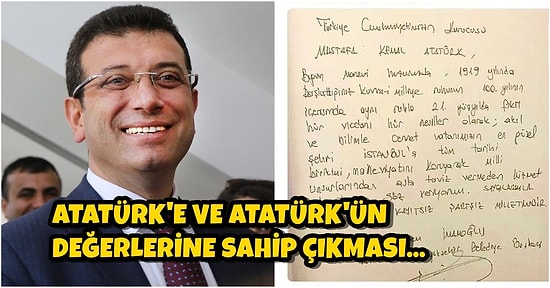 Türkiye Cumhuriyetinin Kurucusu
MUSTAFA KEMAL ATATÜRK,
Bugün manevi huzurunda, 1919 yılında
başlattığınız kuvayi milliye ruhunun 100. yılının
içerisinde aynı ruhla 21. yüzyılda fikri
hür vicdanı hür nesiller olarak; akıl
ve bilimle cennet vatanımızın en güzel
şehri İSTANBUL'a tüm tarihi
birikimi, maneviyatını koruyarak milli
unsurlarından asla taviz vermeden hizmet
söz veriyorum. saygılarımla
KAYITSIZ ŞARTSIZ MİLLETİNDİR.
İMAMOĞLU
Belediye Başkanı
ATATÜRK'E VE ATATÜRK'ÜN
DEĞERLERİNE SAHİP ÇIKMASI...